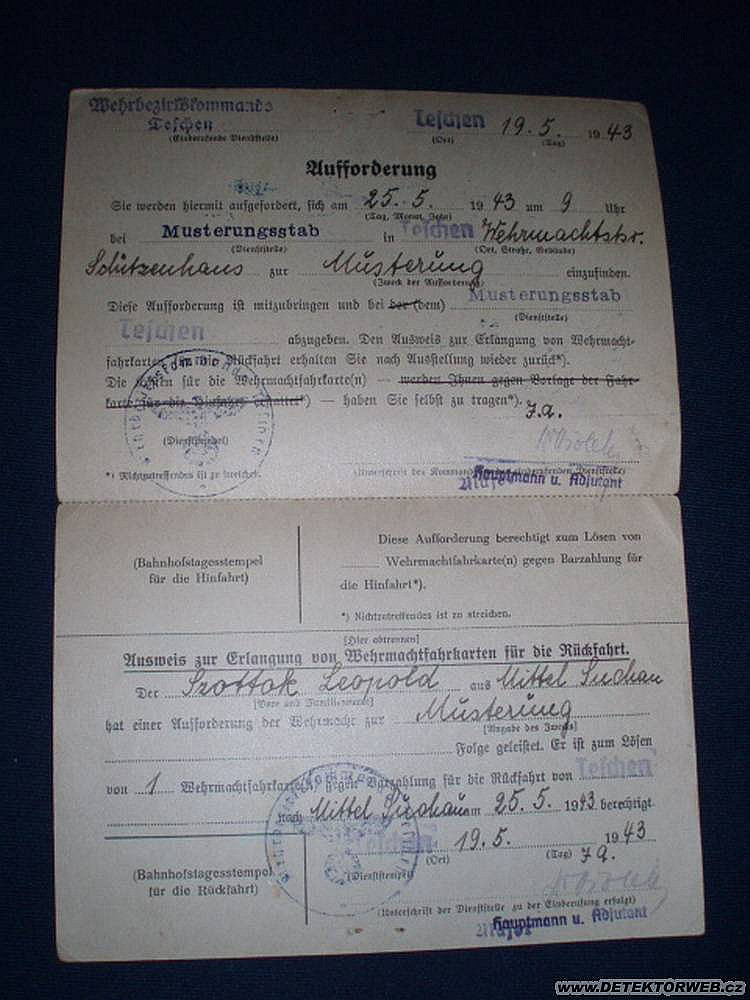 Wehrbezirkskommando
Teschen
(Einberufende Dienststelle)
Teschen 19.5. 1943
(Ort) (Tag)
Aufforderung
Sie werden hiermit aufgefordert, sich am 25.5. 1943 um 9 Uhr
(Tag, Monat, Jahr)
bei Musterungsstab in Teschen Wehrmachtstr.
(Dienststelle) (Ort, Straße, Gebäude)
Schützenhaus zur Musterung einzufinden.
(Zweck der Aufforderung)
Diese Aufforderung ist mitzubringen und bei der (dem) Musterungsstab
(Dienststelle)
Teschen abzugeben. Den Ausweis zur Erlangung von Wehrmacht-
fahrkarten für die Rückfahrt erhalten Sie nach Ausstellung wieder zurück*).
Die Kosten für die Wehrmachtfahrkarte(n) — werden Ihnen gegen Vorlage der Fahr-
karte für die Hinfahrt erstattet*) — haben Sie selbst zu tragen*).
J.A.
(Dienstsiegel)
*) Nichtzutreffendes ist zu streichen.
(Unterschrift des der einberufenden Dienststelle)
Major Hauptmann u. Adjutant
(Bahnhofstagesstempel
für die Hinfahrt)
Diese Aufforderung berechtigt zum Lösen von
Wehrmachtfahrkarte(n) gegen Barzahlung für
die Hinfahrt*).
*) Nichtzutreffendes ist zu streichen.
[Hier abtrennen]
Ausweis zur Erlangung von Wehrmachtfahrkarten für die Rückfahrt.
Der Szottok Leopold aus Mittel Suchau
[Vor- und Familienname]
hat einer Aufforderung der Wehrmacht zur Musterung
[Angabe des Zwecks]
Folge geleistet. Er ist zum Lösen
von 1 Wehrmachtfahrkarte(n) gegen Barzahlung für die Rückfahrt von Teschen
nach Mittel Suchau am 25.5. 1943 berechtigt
Teschen 19.5. 1943
(Ort) (Tag)
J.A.
(Bahnhofstagesstempel
für die Rückfahrt)
(Dienststempel)
(Unterschrift der Dienststelle zu der Einberufung erfolgt)
Major Hauptmann u. Adjutant
www.DETEKTORWEB.cz